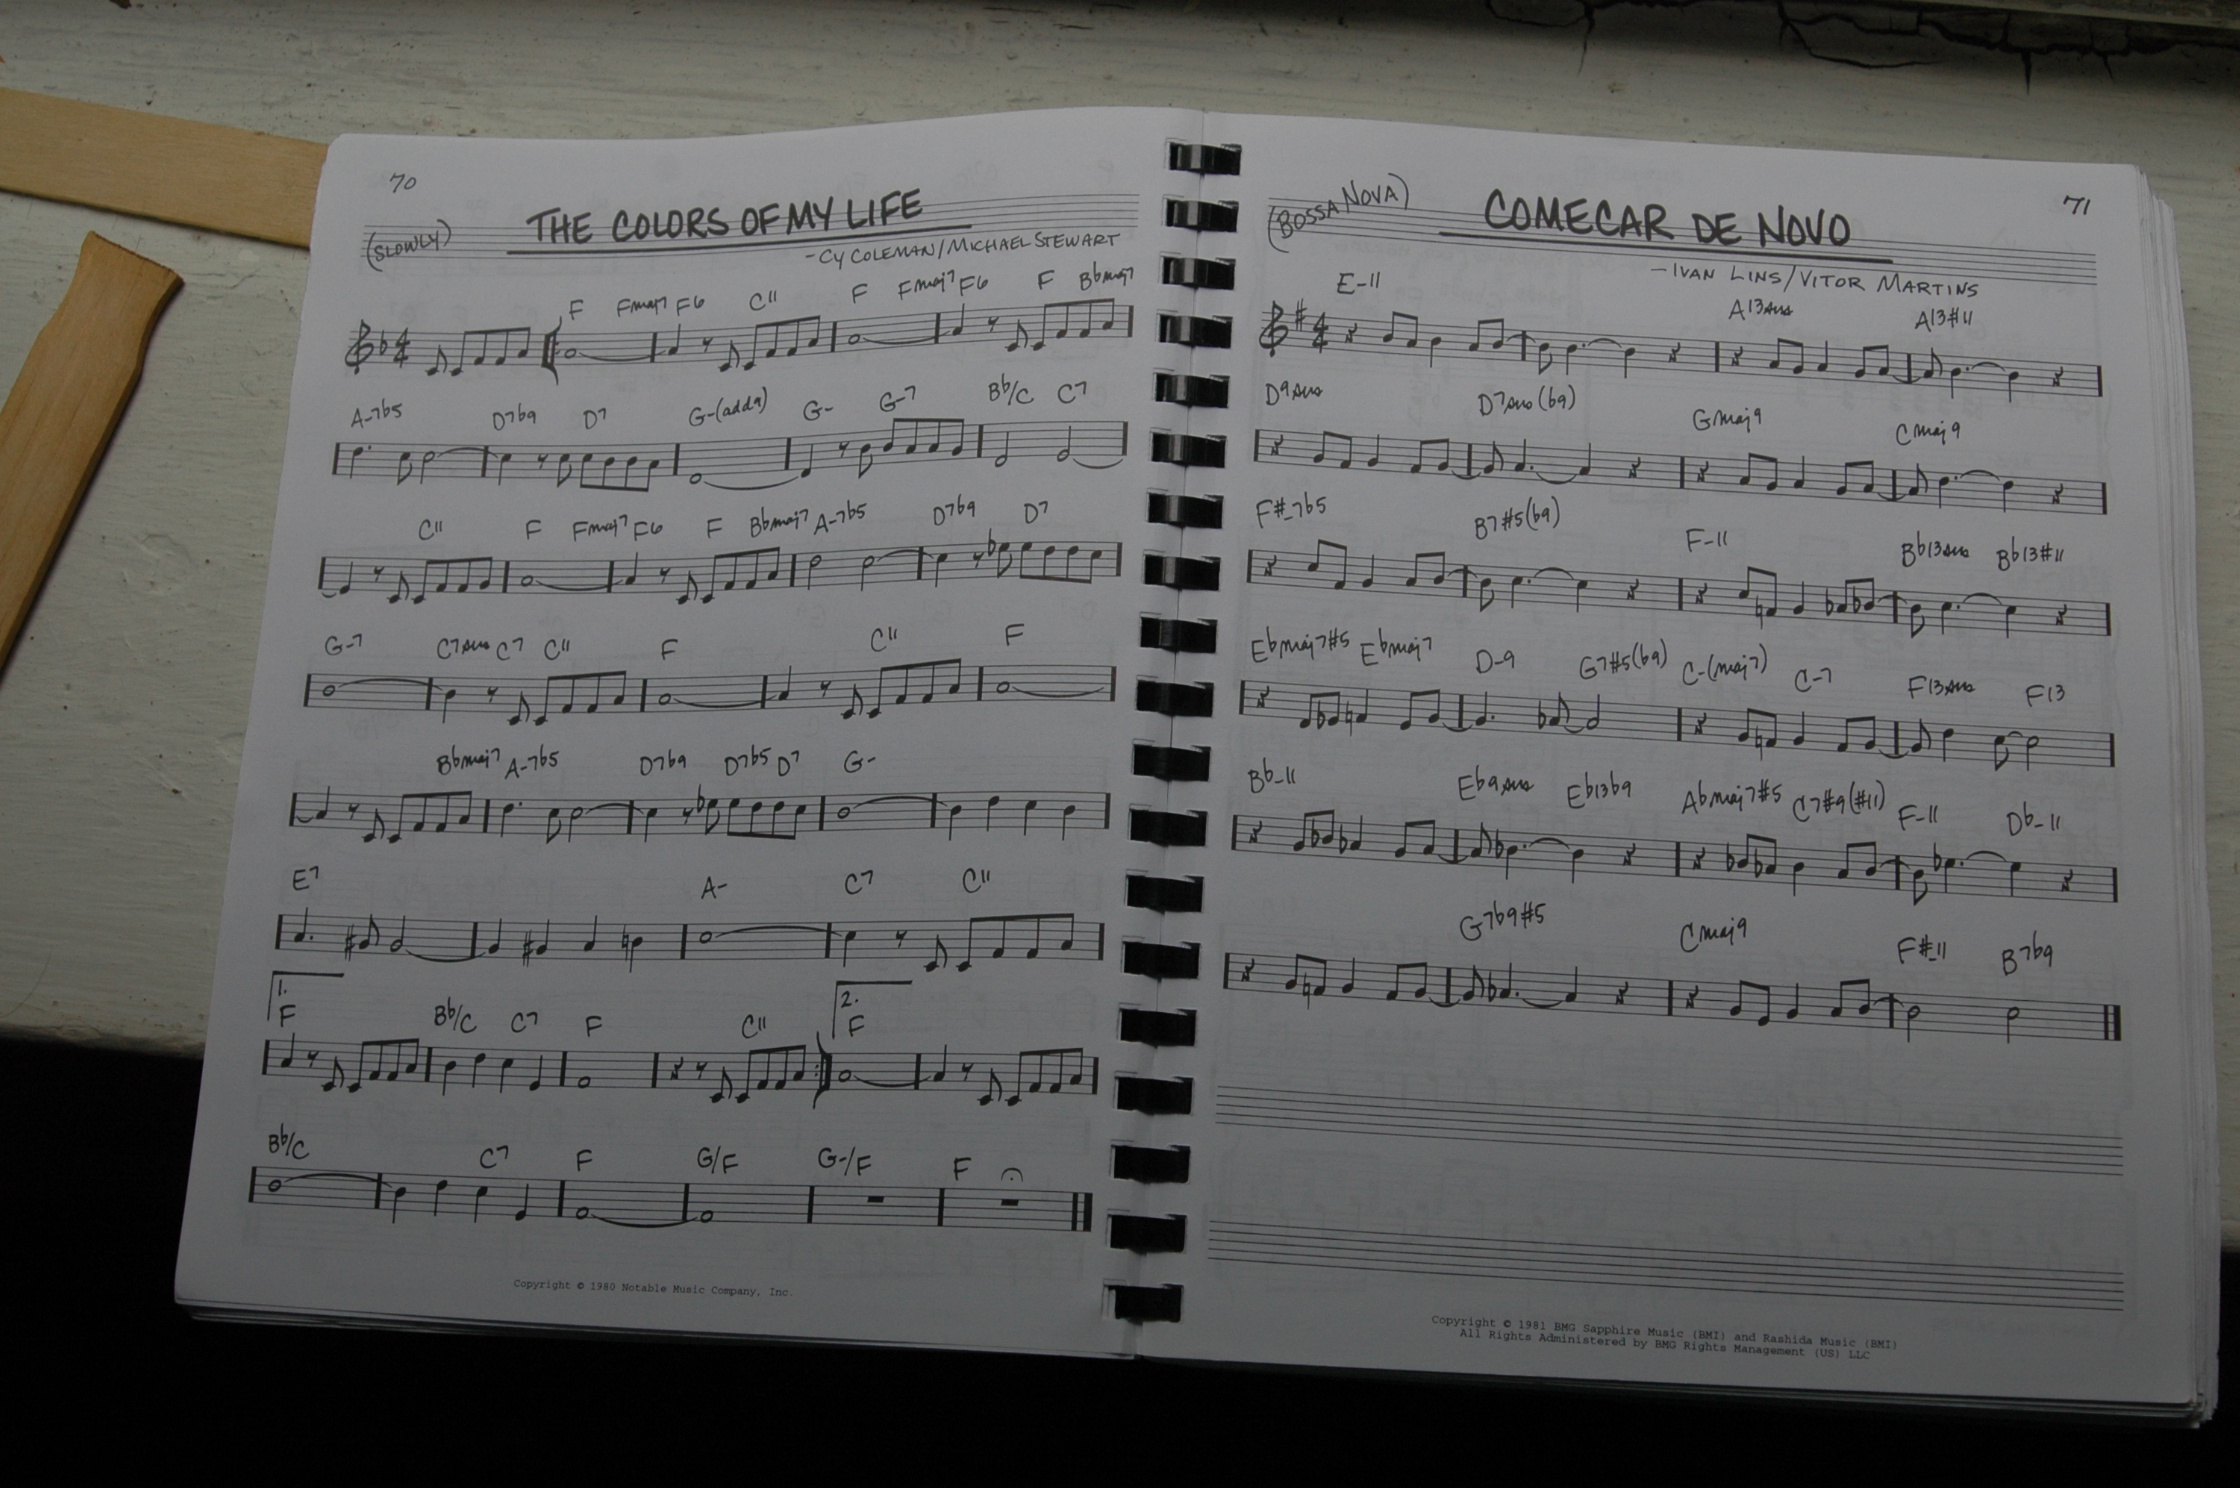 70
(SLOWLY)
THE COLORS OF MY LIFE
-CY COLEMAN/MICHAEL STEWART
F Fmaj7 F6 C11 F Fmaj7 F6 F Bbmaj7
A-7b5 D7b9 D7 G-(add9) G- G-7 Bb/C C7
C11 F Fmaj7 F6 F Bbmaj7 A-7b5 D7b9 D7
G-7 C7sus C7 C11 F C11 F
Bbmaj7 A-7b5 D7b9 D7b5 D7 G-
E7 A- C7 C11
1. 2.
F Bb/C C7 F C11 F
Bb/C C7 F G/F G-/F F
Copyright © 1980 Notable Music Company, Inc.
71
(BOSSA NOVA)
COMECAR DE NOVO
-IVAN LINS/VITOR MARTINS
E-11 A13sus A13#11
D9sus D7sus(b9) Gmaj9 Cmaj9
F#-7b5 B7#5(b9) F-11 Bb13sus Bb13#11
Ebmaj7#5 Ebmaj7 D-9 G7#5(b9) C-(maj7) C-7 F13sus F13
Bb-11 Eb9sus Eb13b9 Abmaj7#5 C7#9(#11) F-11 Db-11
G7b9#5 Cmaj9 F#-11 B7b9
Copyright © 1981 BMG Sapphire Music (BMI) and Rashida Music (BMI)
All Rights Administered by BMG Rights Management (US) LLC